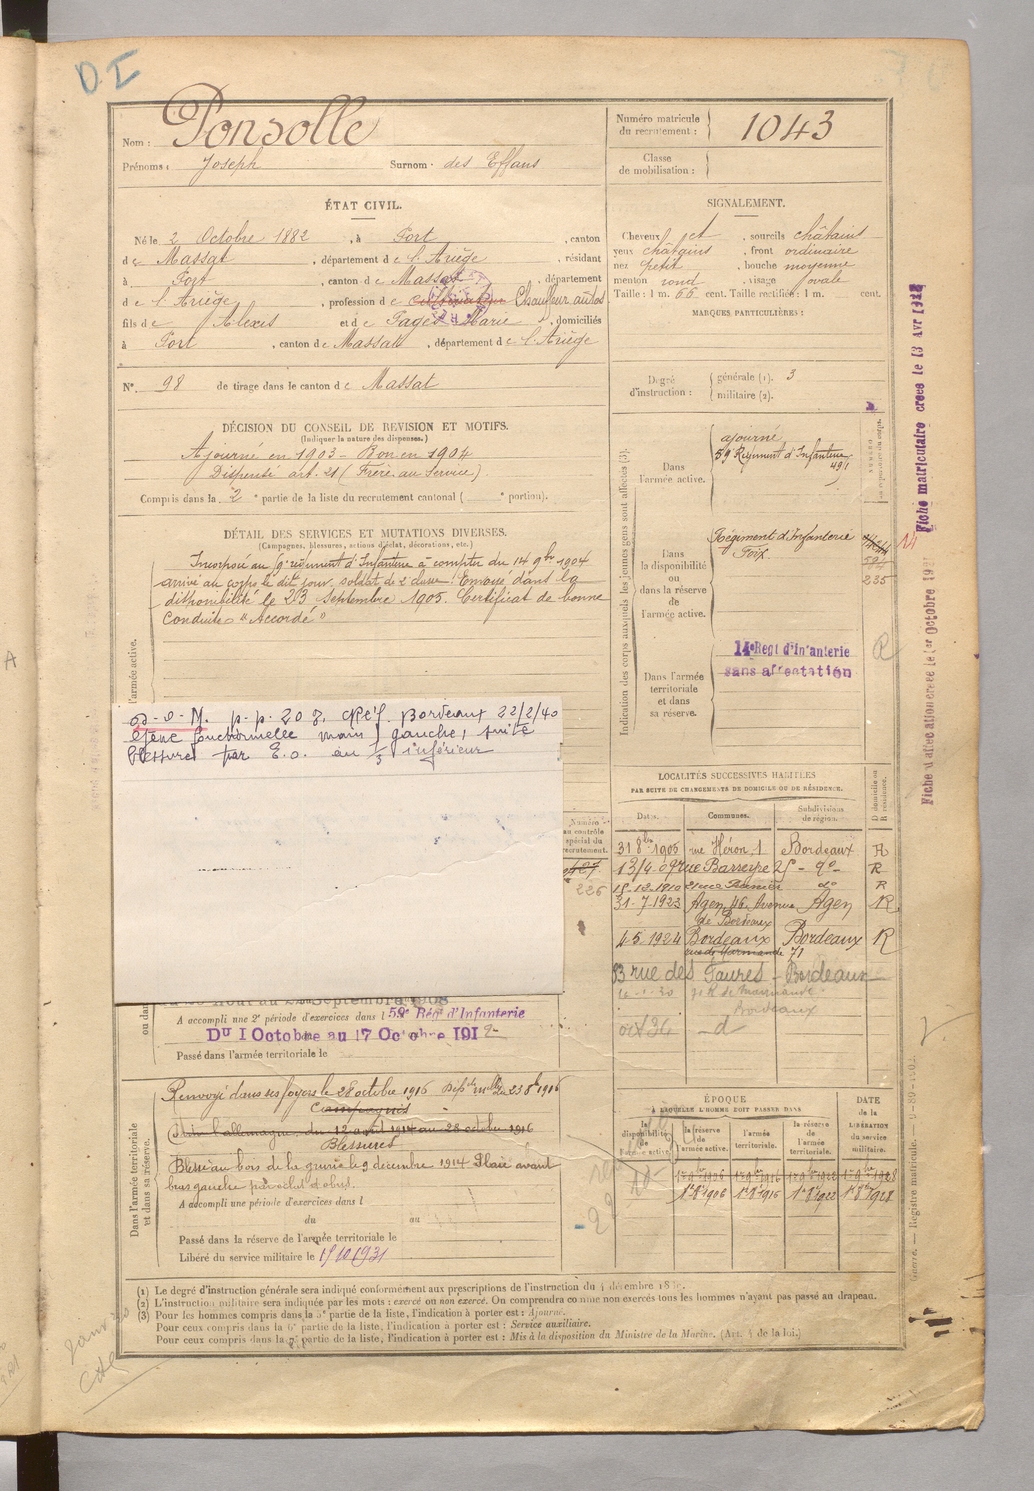 D.I
Nom : Ponsolle
Prénoms : Joseph Surnom : des Effans
Numéro matricule du recrutement : 1043
Classe de mobilisation :
ÉTAT CIVIL.
Né le 2 Octobre 1882, à Port, canton
de Massat, département de l'Ariège, résidant
à Port, canton de Massat, département
de l'Ariège, profession de Cultivateur Chauffeur autos
fils de Alexis et de Pagès Marie, domiciliés
à Port, canton de Massat, département de l'Ariège
N° 98 de tirage dans le canton de Massat
SIGNALEMENT.
Cheveux ct, sourcils châtains
yeux châtains, front ordinaire
nez petit, bouche moyenne
menton rond, visage ovale
Taille : 1 m. 66 cent. Taille rectifiée : 1 m. cent.
MARQUES PARTICULIÈRES :
Degré d'instruction : générale (1). 3
militaire (2).
DÉCISION DU CONSEIL DE REVISION ET MOTIFS.
(Indiquer la nature des dispenses.)
Ajourné en 1903 - Bon en 1904
Dispensé art. 21 (Frère au Service)
Compris dans la 2e partie de la liste du recrutement cantonal ( e portion).
DÉTAIL DES SERVICES ET MUTATIONS DIVERSES.
(Campagnes, blessures, actions d'éclat, décorations, etc.)
Incorporé au 9e régiment d'Infanterie à compter du 14 9bre 1904
arrivé au corps le dit jour, soldat de 2e classe. Envoyé dans la
disponibilité le 23 Septembre 1905. Certificat de bonne
Conduite "Accordé"
p.p. 20 Bordeaux 22/2/40
Gêne fonctionnelle main gauche, suite
blessure par E.O. au 1/3 inférieur
Indication des corps auxquels les jeunes gens sont affectés (3).
Dans l'armée active.
ajourné
59 Régiment d'Infanterie
491
Dans la disponibilité ou dans la réserve de l'armée active.
Régiment d'Infanterie
Foix
235
Dans l'armée territoriale et dans sa réserve.
14e Regt d'Infanterie
sans affectation
R
Fiche matriculaire créée le 13 Avr
Fiche d'affectation créée le 1er Octobre
LOCALITÉS SUCCESSIVES HABITÉES
PAR SUITE DE CHANGEMENTS DE DOMICILE OU DE RÉSIDENCE.
Dates. Communes. Subdivisions de région. D domicile ou R résidence.
31 8bre 1905 rue Héron, 1 Bordeaux R
13/4 09 rue Barreyre 25 - do - R
15-12-1910 do R
31-7-1923 Agen, 46, Avenue de Bordeaux Agen R
4-5-1924 Bordeaux rue de Marmande 71 Bordeaux R
83 rue des Faures - Bordeaux
R. de Marmande Bordeaux
oct 36 - d
Numéro au contrôle spécial du recrutement.
226
A accompli une 2e période d'exercices dans l 59e Rég. d'Infanterie
Du 1 Octobre au 17 Octobre 1912
Passé dans l'armée territoriale le
Dans l'armée territoriale et dans sa réserve.
Renvoyé dans ses foyers le 28 octobre 1916
Campagnes
Contre l'allemagne, du 12 août 1914 au 28 octobre 1916
Blessures
Blessé au bois de la grurie le 9 décembre 1914 Plaie avant
bras gauche par éclat d'obus.
A accompli une période d'exercices dans l
du au
Passé dans la réserve de l'armée territoriale le
Libéré du service militaire le 15 10 1931
ÉPOQUE
À LAQUELLE L'HOMME DOIT PASSER DANS
la disponibilité de l'armée active. la réserve de l'armée active. l'armée territoriale. la réserve de l'armée territoriale.
DATE de la LIBÉRATION du service militaire.
1er 8bre 1906 1er 8bre 1916 1er 8bre 1922 1er 8bre 1928
(1) Le degré d'instruction générale sera indiqué conformément aux prescriptions de l'instruction du 4 décembre
(2) L'instruction militaire sera indiquée par les mots : exercé ou non exercé. On comprendra comme non exercés tous les hommes n'ayant pas passé au drapeau.
(3) Pour les hommes compris dans la 5e partie de la liste, l'indication à porter est : Ajourné.
Pour ceux compris dans la 6e partie de la liste, l'indication à porter est : Service auxiliaire.
Pour ceux compris dans la 7e partie de la liste, l'indication à porter est : Mis à la disposition du Ministre de la Marine. (Art. 4 de la loi.)